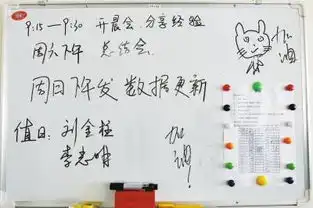 9:15—9:30 开晨会 分享经验
周六下午 总结会
加油
周日下午发 数据更新
值日: 刘金柱
李志明
加油!